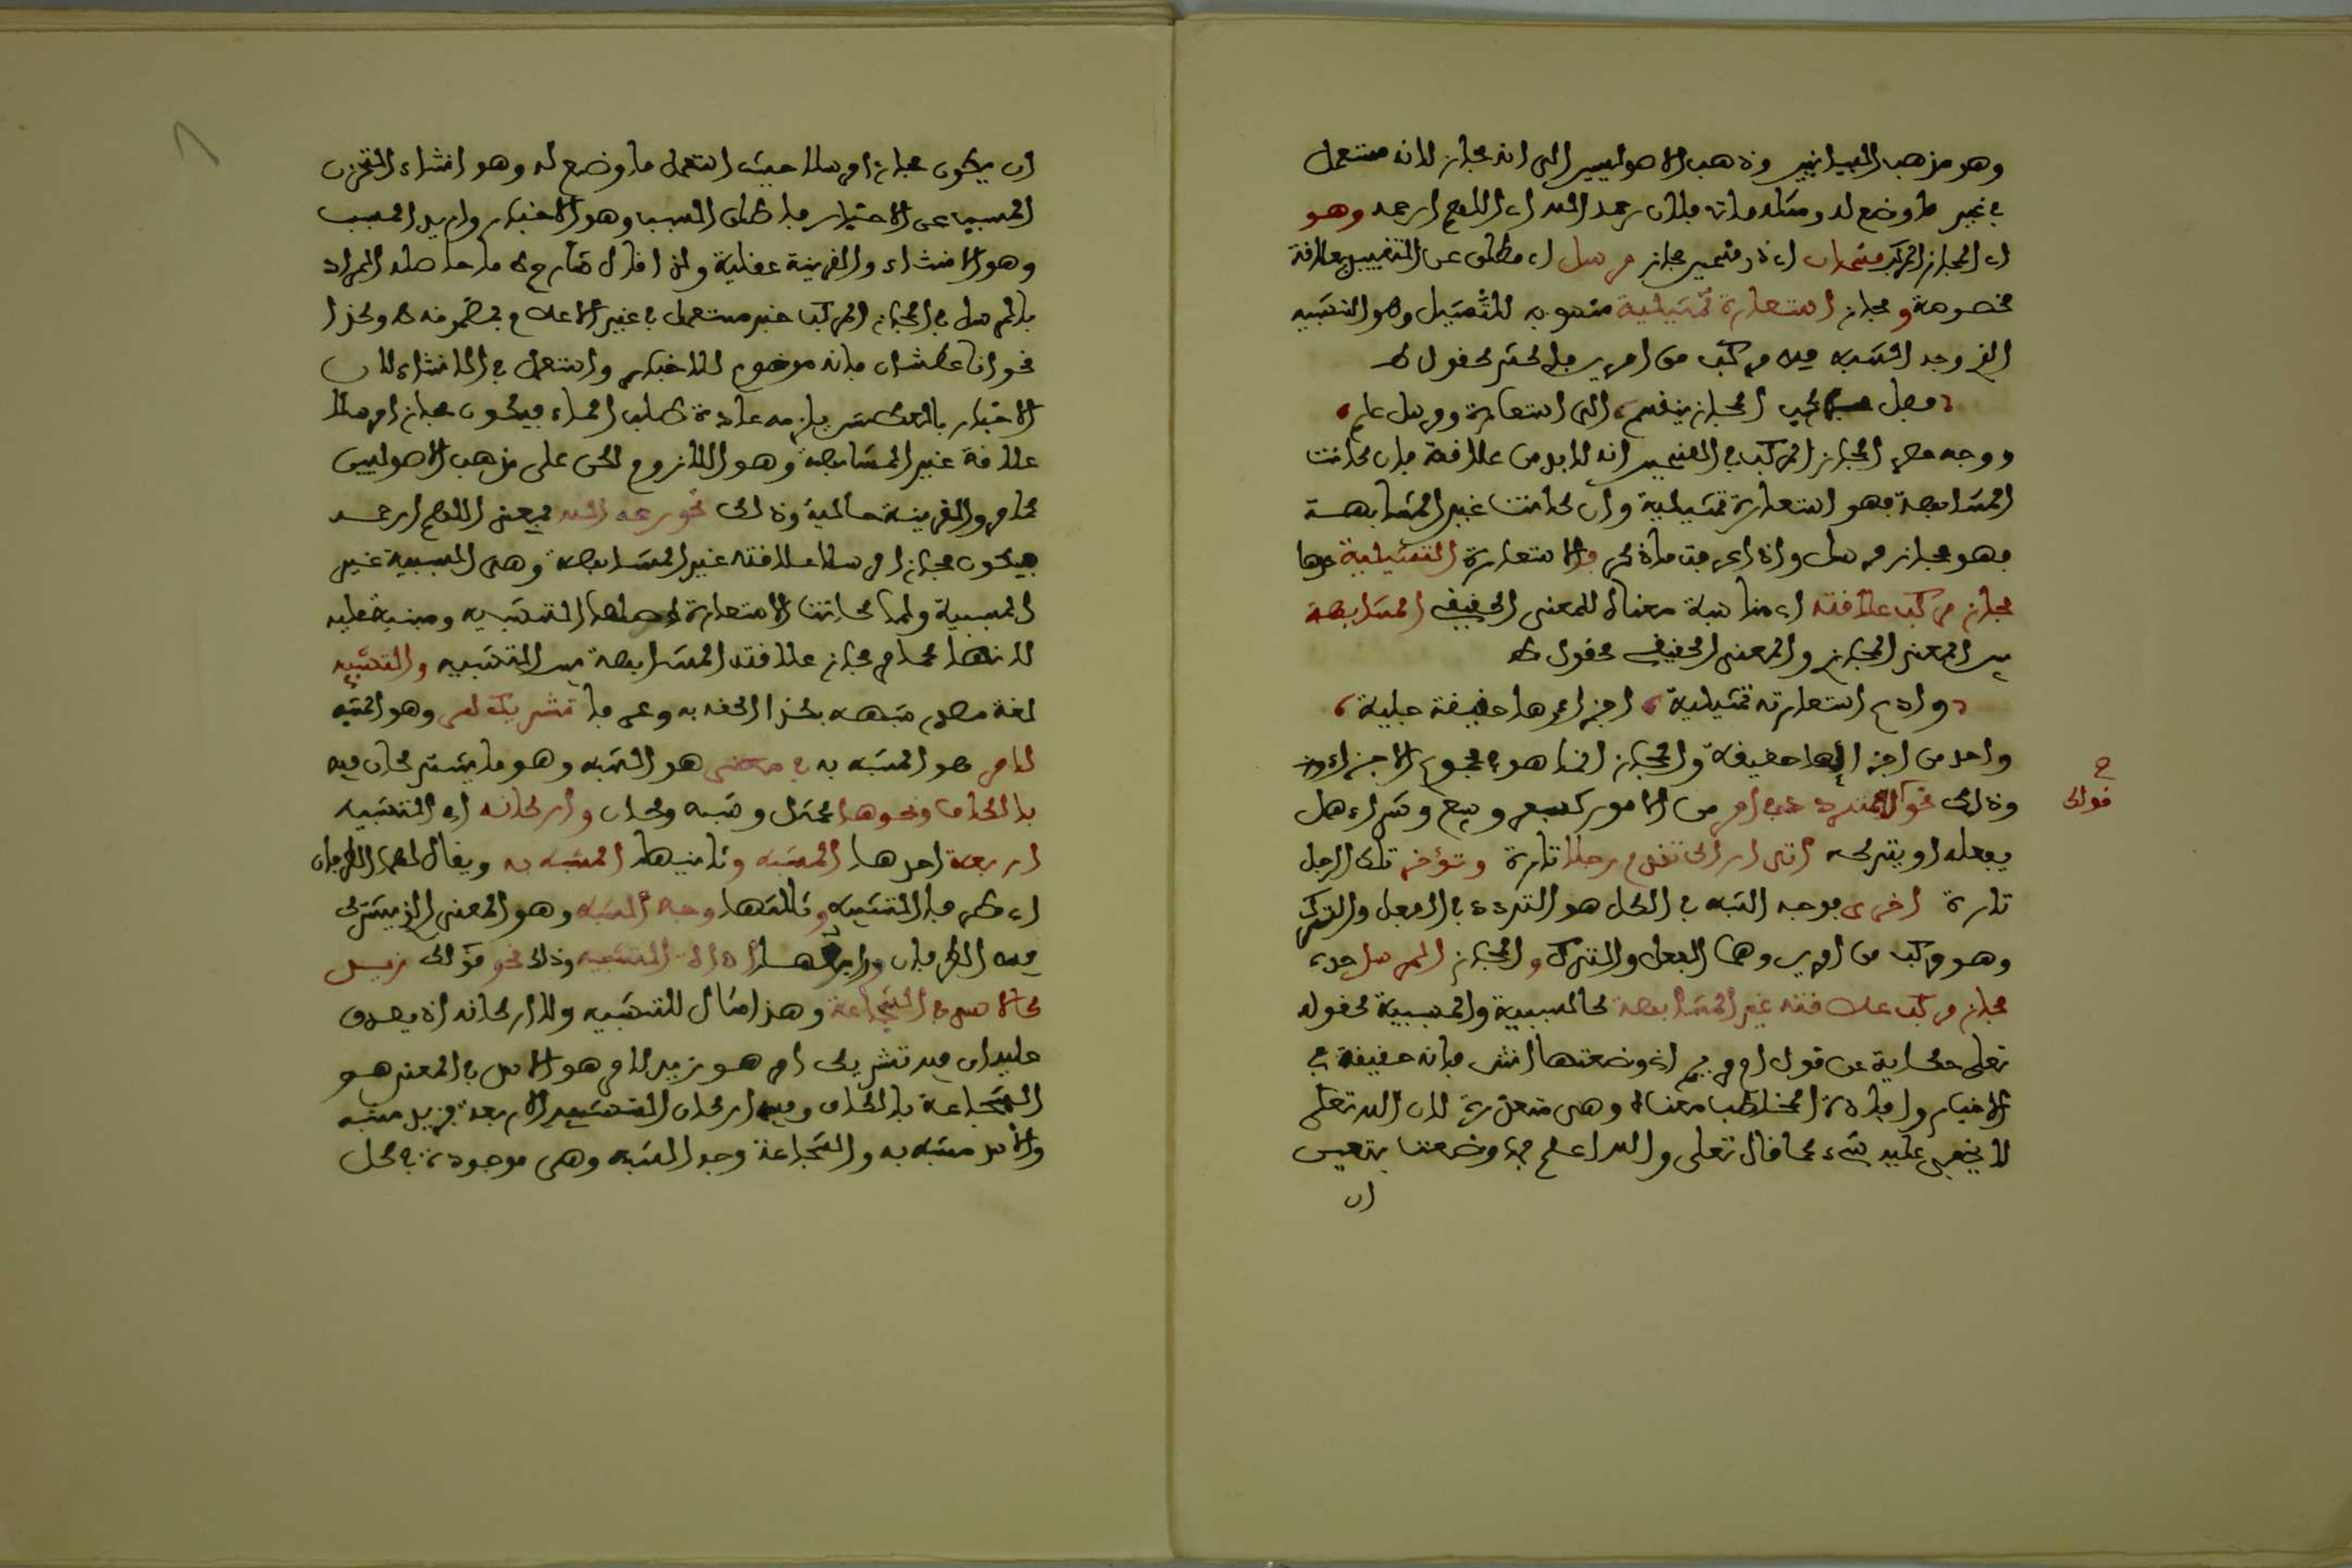 وهو مذهب البيانيين وذهب الاصوليين الى انه مجاز لانه مستعمل
في غير ما وضع له ومثله مات فلان رحمه الله اي اللهم ارحمه وهو
اي المجاز المركب قسمان اي ذو قسمين مجاز مرسل اي مطلق عن التقييد بعلاقة
مخصوصة ومجاز استعارة تمثيلية منسوبة للتمثيل وهو التشبيه
الذي وجه الشبه فيه مركب من امرين فاكثر كقول
فصل مركب المجاز ينقسم الى استعارة ومرسل علم
ووجه حصر المجاز المركب في القسمين انه لابد من علاقة فان كانت
المشابهة فهو استعارة تمثيلية وان كانت غير المشابهة
فهو مجاز مرسل واذا عرفت ما ذكر فالاستعارة التمثيلية حدها
مجاز مركب علاقته اي مناسبة معناه للمعنى الحقيقي المشابهة
بين المعنى المجازي والمعنى الحقيقي كقول
وادع استعارته تمثيلية اجزاؤها حقيقة جلية
واحد من اجزائها حقيقة والمجاز انما هو في مجموع الاجزاء
وذلك نحو قولك للمتردد في امر من الامور كسفر وبيع وشراء هل
يفعله او يتركه اني اراك تقدم رجلا تارة وتؤخر تلك الرجل
تارة اخرى فوجه الشبه في الكل هو التردد في الفعل والترك
وهو مركب من امرين وهما الفعل والترك والمجاز المرسل حده
مجاز مركب علاقته غير المشابهة كالسببية والمسببية كقوله
تعلى حكاية عن قول ام مريم اني وضعتها انثى فانه حقيقة في
الاخبار وافادة المخاطب معناه وهي متعذرة لان الله تعلى
لا يخفى عليه شيء كما قال تعلى والله اعلم بما وضعت فتعين
ان
قولك
ان يكون مجازا مرسلا حيث استعمل ما وضع له وهو انشاء التحزن
المسبب عن الاخبار فاطلق السبب وهو الاخبار واريد المسبب
وهو الانشاء والقرينة عقلية ولذا قال شارح ما حاصله المراد
بالمرسل في المجاز المركب خبر مستعمل في غير الاعلام بمضمونه وكذا
نحو انا عطشان فانه موضوع للاخبار واستعمل في الانشاء لان
الاخبار بالعطش يلزمه عادة طلب الماء فيكون مجازا مرسلا
علاقته غير المشابهة وهو اللزوم لكن على مذهب الاصوليين
كما مر والقرينة حالية وذلك نحو رحمه الله بمعنى اللهم ارحمه
فيكون مجازا مرسلا علاقته غير المشابهة وهي المسببية عن
السببية ولما كانت الاستعارة اصلها التشبيه ومبنية عليه
لانها كما مر مجاز علاقته المشابهة بين التشبيه والتشبيه
لغة مصدر شبهه بكذا الحقه به وعرفا تشريك امر وهو المشبه
لامر هو المشبه به في معنى هو الشبه وهو ما يشتركان فيه
بالكاف ونحوها كمثل وشبه وكان واركانه اي التشبيه
اربعة احدها المشبه وثانيها المشبه به ويقال لهما الطرفان
اي طرفا التشبيه وثالثها وجه الشبه وهو المعنى الذي يشترك
فيه الطرفان ورابعها اداة التشبيه وذلك نحو قولك زيد
كالاسد في الشجاعة وهذا مثال للتشبيه ولاركانه اذ يصدق
عليه ان فيه تشريك امر هو زيد لامر هو الاسد في المعنى هو
الشجاعة بالكاف وفيه اركان التشبيه الاربعة فزيد مشبه
والاسد مشبه به والشجاعة وجه الشبه وهي موجودة في كل